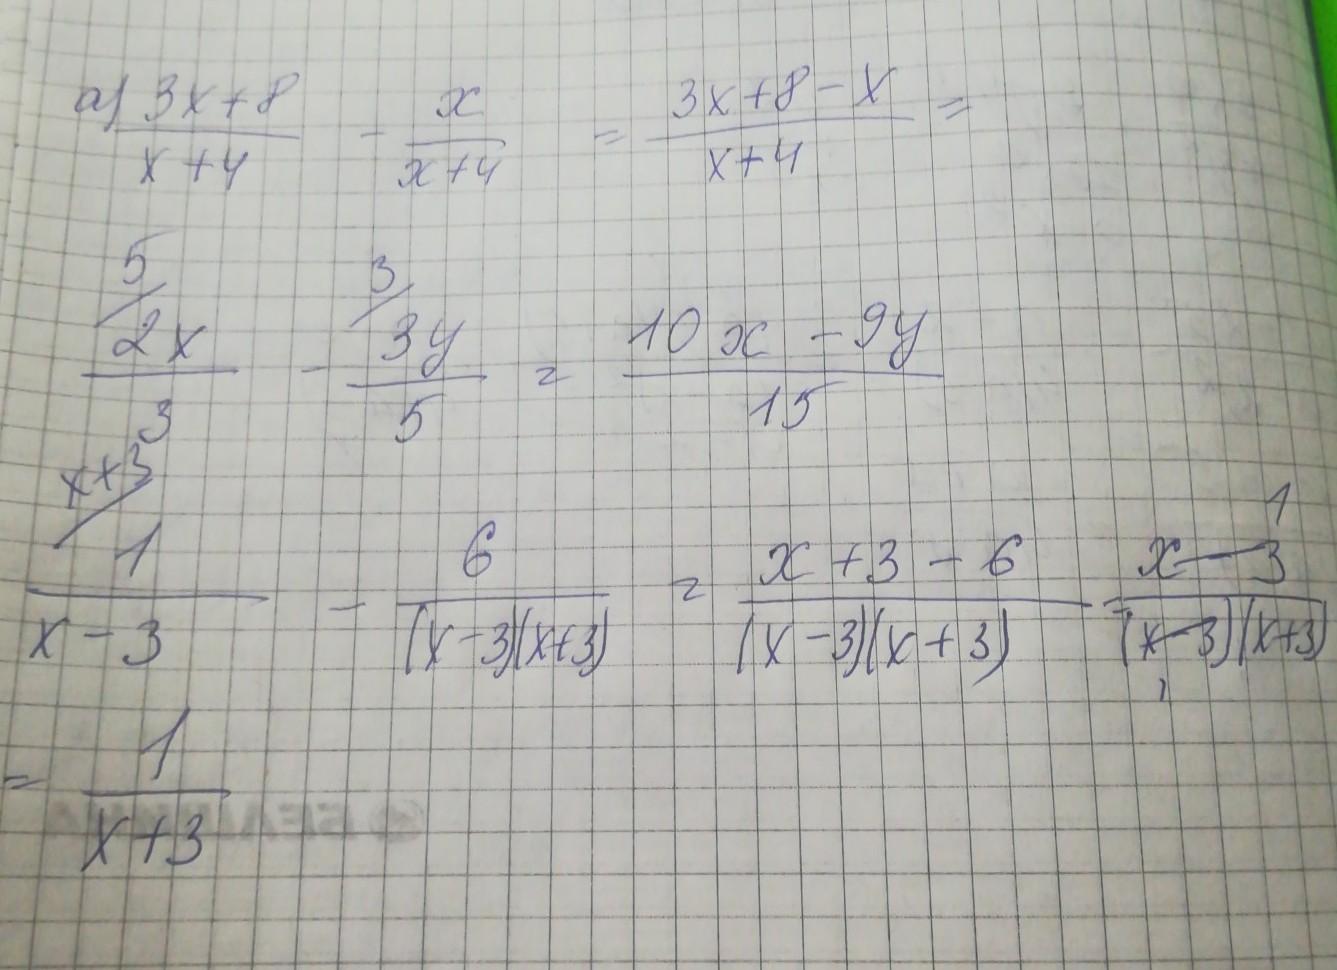 а) (3x+8)/(x+4) - x/(x+4) = (3x+8-x)/(x+4) =
5/ 2x/3 - 3/ 3y/5 = (10x-9y)/15
x+3/ 1/(x-3) - 6/((x-3)(x+3)) = (x+3-6)/((x-3)(x+3)) = (x-3)/((x-3)(x+3)) 1 1
= 1/(x+3)